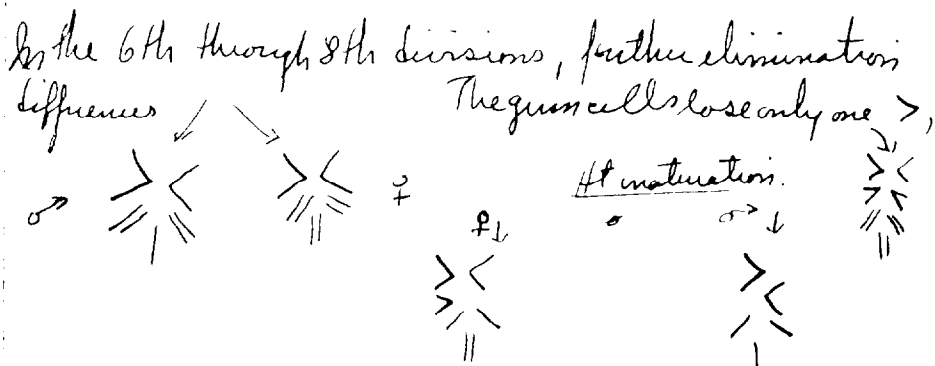 In the 6th through 8th divisions, further elimination
differences
The germ cells lose only one >,
♂ ♀ At maturation.
♀ ♂